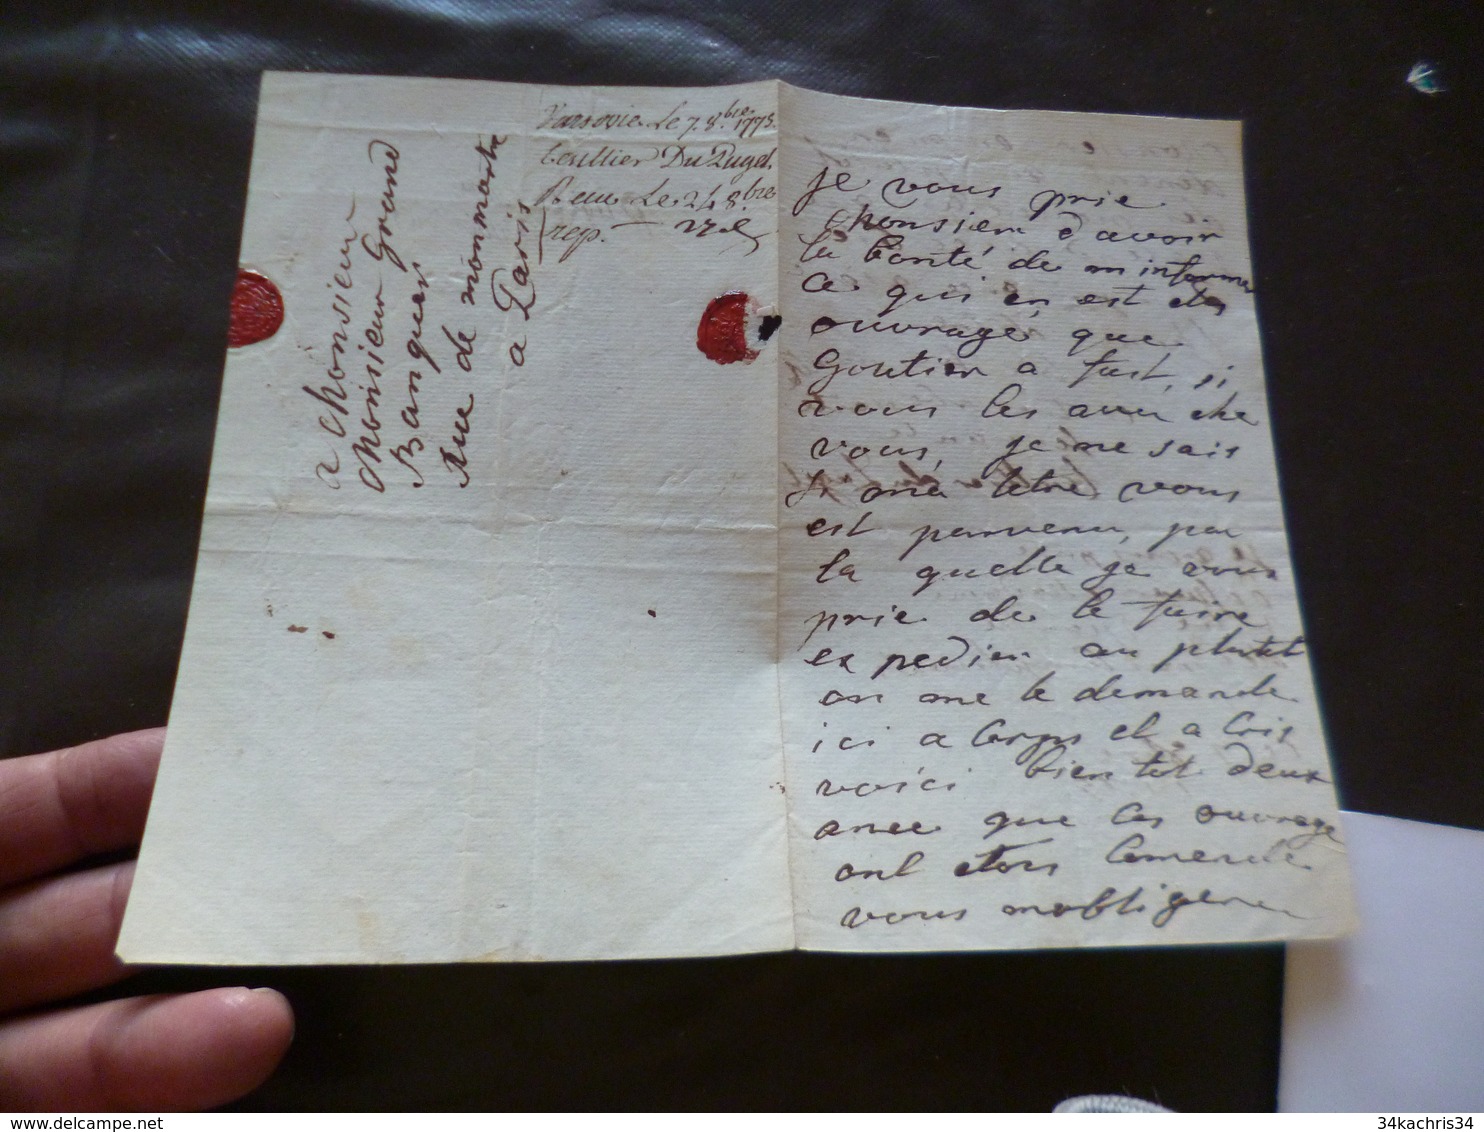 a Monsieur
Monsieur Grand
Banquier
Rue de monmartre
a Paris
Varsovie Le 7. 8.bre 1778.
Du Puget.
Recu Le 24 8.bre
rep. —
je vous prie
Monsieur d'avoir
la bonté de m informer
ce qui en est des
ouvrage, que
Goutier a fait, si
vous les avez che
vous, je ne sais
si ma letre vous
est parvenu, par
la quelle je vous
prie de le faire
ex pedier au plutot
on me le demande
ici a Corps et a Cris
voici bientot deux
anee que ces ouvrage
ont etois Comende
vous mobligerez
34kachris34